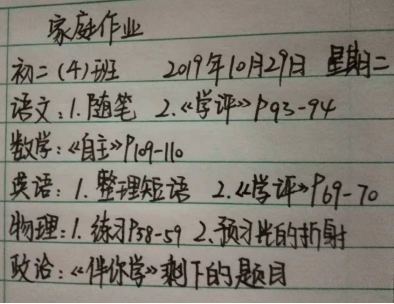 家庭作业
初二(4)班 2019年10月29日 星期二
语文:1.随笔 2.《学评》P93-94
数学:《自主》P109-110
英语:1.整理短语 2.《学评》P69-70
物理:1.练习P58-59 2.预习光的折射
政治:《伴你学》剩下的题目